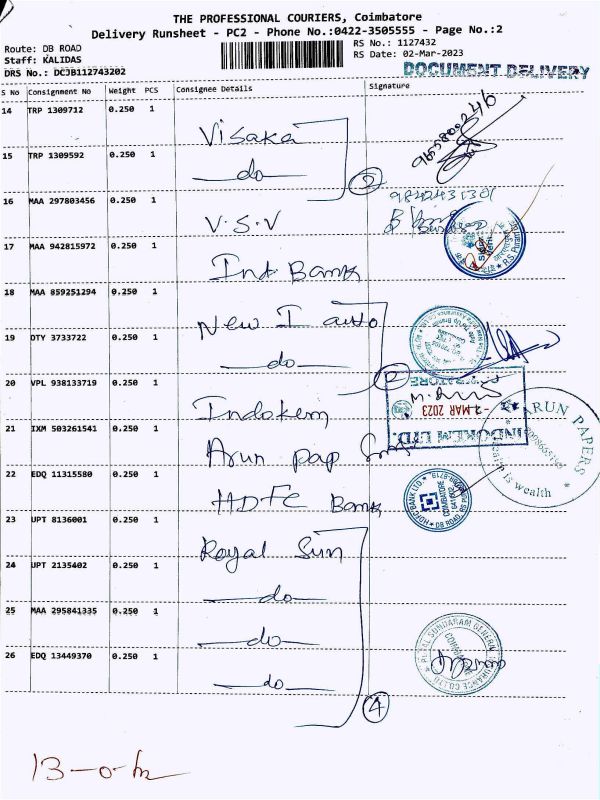 THE PROFESSIONAL COURIERS, Coimbatore
Delivery Runsheet - PC2 - Phone No.:0422-3505555 - Page No.:2
Route: DB ROAD
Staff: KALIDAS
DRS No.: DCJB112743202
RS No.: 1127432
RS Date: 02-Mar-2023
DOCUMENT DELIVERY
S No Consignment No Weight PCS Consignee Details Signature
14 TRP 1309712 0.250 1 Visaka
9655800246
15 TRP 1309592 0.250 1 do
2
16 MAA 297803456 0.250 1 V.S.V
17 MAA 942815972 0.250 1 Ind Bank
18 MAA 859251294 0.250 1 New I auto
19 DTY 3733722 0.250 1 do
2
20 VPL 938133719 0.250 1 Indokem
INDOKEM LTD.
-2 MAR 2023
21 IXM 503261541 0.250 1 Arun pap
ARUN PAPERS
is wealth
22 EDQ 11315580 0.250 1 HDFC Bank
HDFC BANK LTD.
COIMBATORE
23 UPT 8136001 0.250 1 Royal Sun
24 UPT 2135402 0.250 1 do
25 MAA 295841335 0.250 1 do
26 EDQ 13449370 0.250 1 do
4
ROYAL SUNDARAM GENERAL INSURANCE CO.LTD.